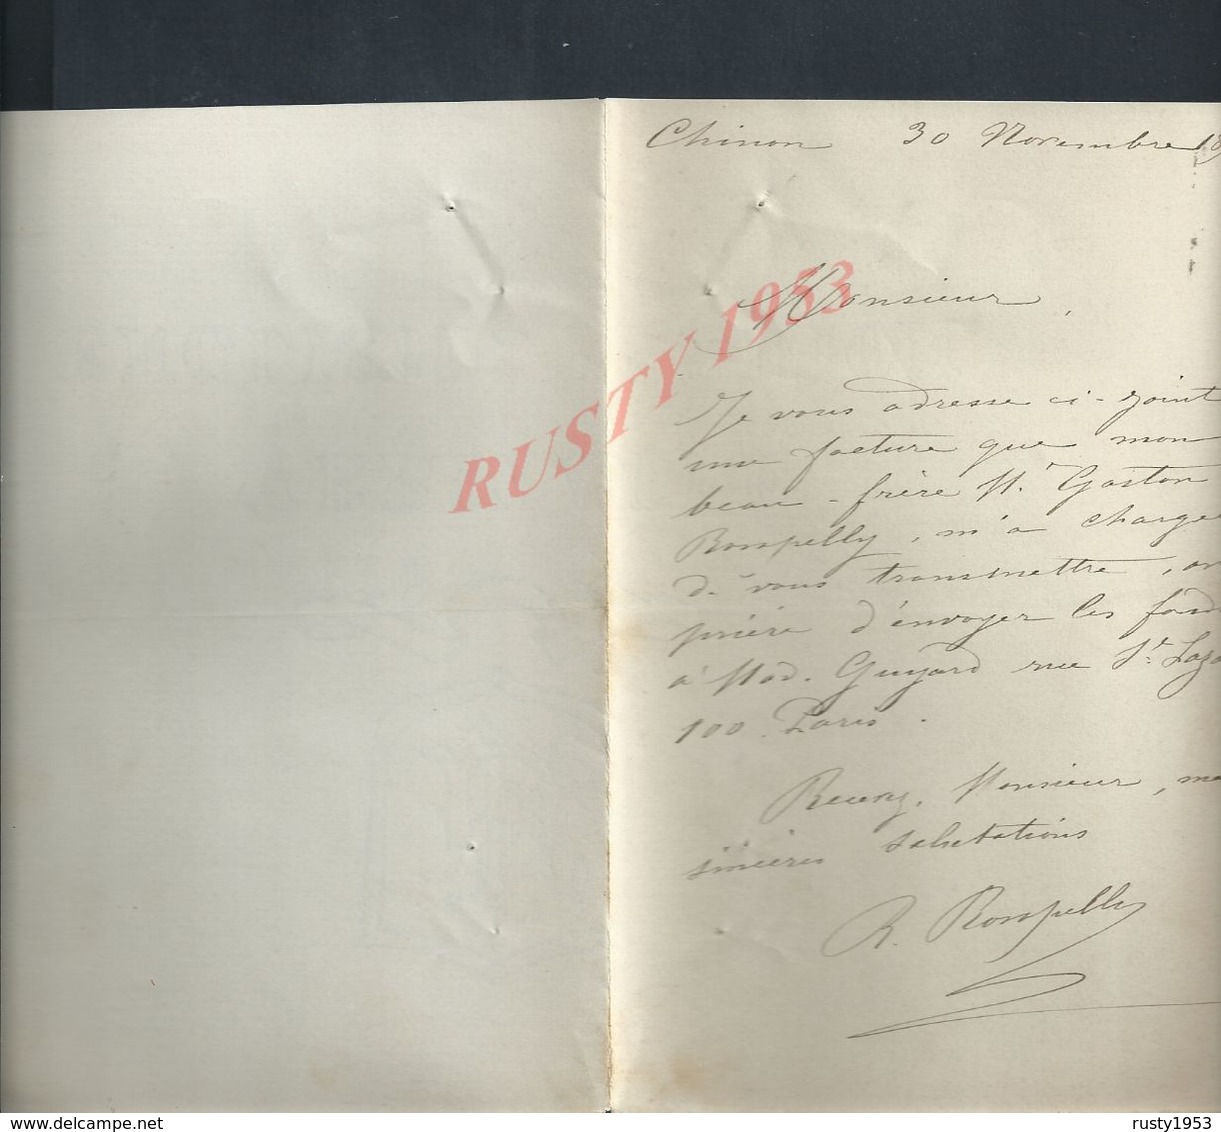 Chinon 30 Novembre 18
Monsieur,
RUSTY 1953
Je vous adresse ci-joint
une facture que mon
beau-frère Mr. Gaston
Rompelly, m'a charge
de vous transmettre,
prière d'envoyer les
à Mad. Guyard rue St. Laza
100 Paris.
Recevez, Monsieur, me
sincères salutations
R. Rompelly
delcampe.net
rusty1953